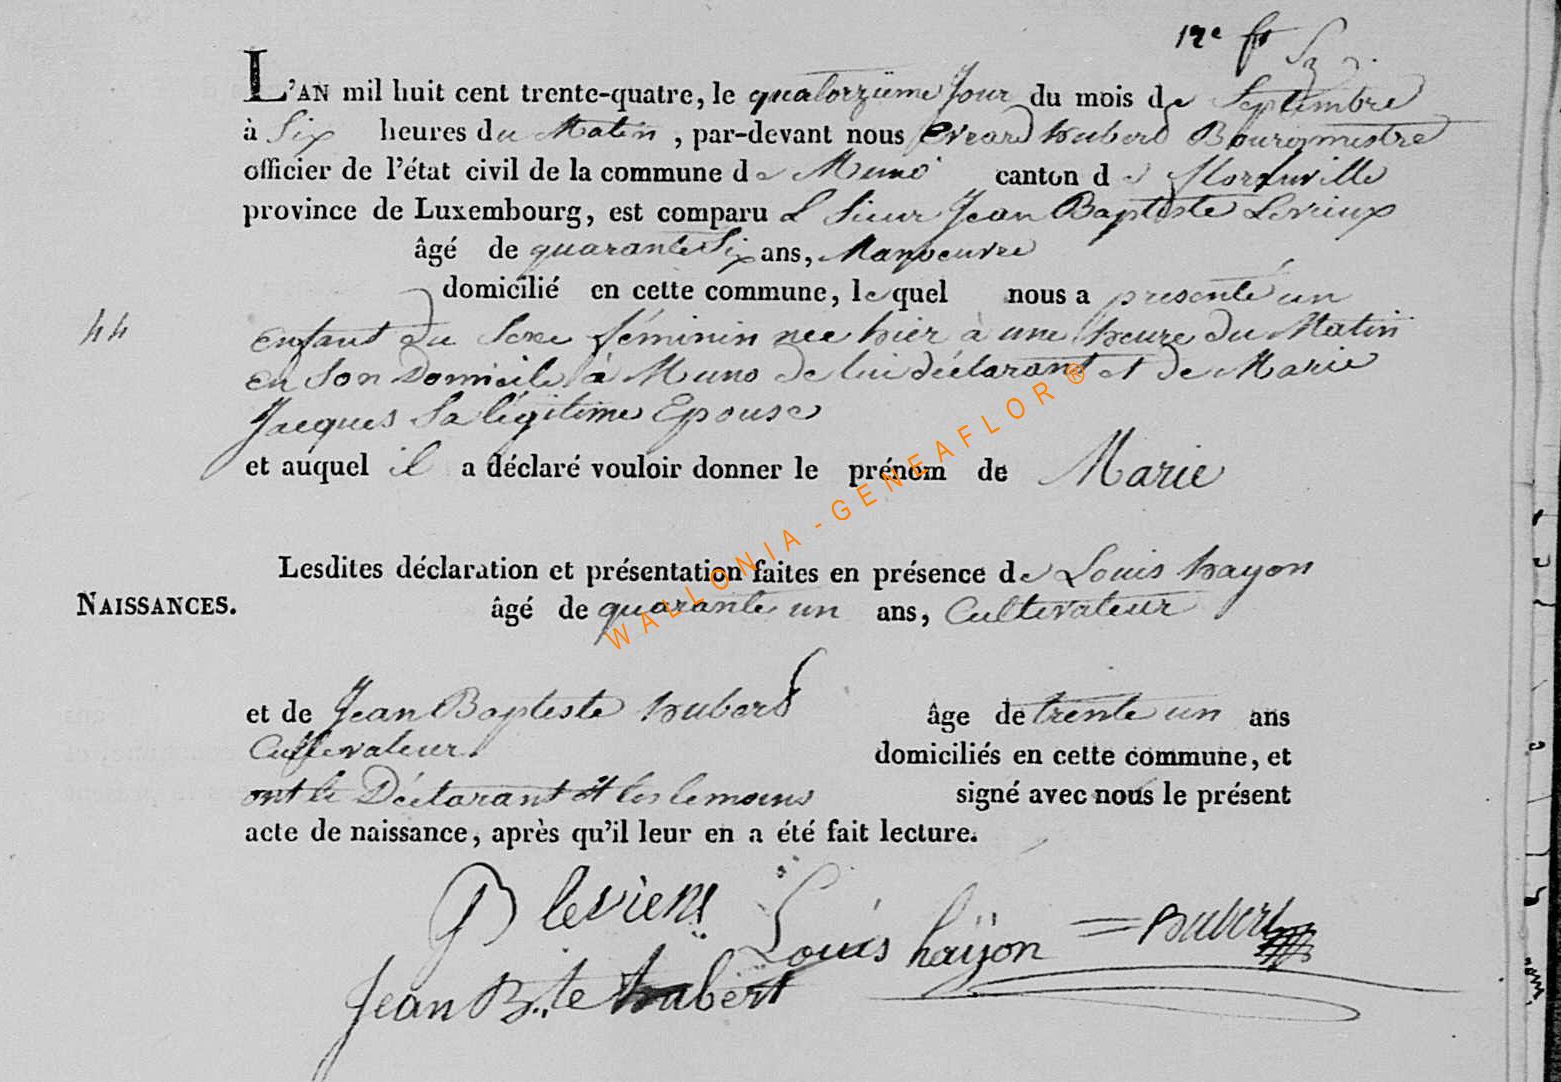 L'AN mil huit cent trente-quatre, le quatorzième Jour du mois de Septembre
à Six heures du Matin, par-devant nous Evrard hubert Bourgmestre
officier de l'état civil de la commune de Muno canton de Florenville
province de Luxembourg, est comparu L Sieur Jean Baptiste Levieux
âgé de quarante Six ans, Manoeuvre
domicilié en cette commune, lequel nous a presenté un
44
enfant du Sexe féminin nee hier à une heure du Matin
en Son Domicile à Muno de lui déclarant et de Marie
Jacques Sa légitime Epouse
et auquel il a déclaré vouloir donner le prénom de Marie
WALLONIA-GENEAFLOR®
Lesdites déclaration et présentation faites en présence de Louis hayon
NAISSANCES.
âgé de quarante un ans, Cultivateur
et de Jean Baptiste hubert âge de trente un ans
Cultivateur domiciliés en cette commune, et
ont le Déclarant et les temoins signé avec nous le présent
acte de naissance, après qu'il leur en a été fait lecture.
JB levieux Louis haÿon hubert
Jean B.te hubert